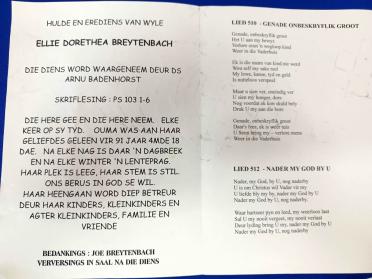 HULDE EN EREDIENS VAN WYLE
ELLIE DOROTHEA BREYTENBACH
DIE DIENS WORD WAARGENEEM DEUR DS
ARNU BADENHORST
SKRIFLESING : PS 103 1-6
DIE HERE GEE EN DIE HERE NEEM. ELKE
KEER OP SY TYD. OUMA WAS AAN HAAR
GELIEFDES GELEEN VIR 91 JAAR 4MDE 18
DAE. NA ELKE NAG IS DAAR 'N DAGBREEK
EN NA ELKE WINTER 'N LENTEPRAG.
HAAR PLEK IS LEEG, HAAR STEM IS STIL.
ONS BERUS IN GOD SE WIL.
HAAR HEENGAAN WORD DIEP BETREUR
DEUR HAAR KINDERS, KLEINKINDERS EN
AGTER KLEINKINDERS, FAMILIE EN
VRIENDE
BEDANKINGS : JOE BREYTENBACH
VERVERSINGS IN SAAL NA DIE DIENS
LIED 510 - GENADE ONBESKRYFLIK GROOT
Genade, onbeskryflik groot
Het U aan my bewys
Verlore seun 'n wegloop kind
Weer in die Vaderhuis
Ek is die naam van kind nie werd
Want self sug sake
My lewe, kanse, tyd en geld
Is nutteloos verspeel
Maar u sien ver, oneindig ver
U sien my honger, dors
Nog voordat ek kon skuld bely
Druk U my aan die bors
Genade, onbeskryflik groot
Daar's fees, ek is weer tuis
U Seun bring my – verlore mens
Weer in die Vaderhuis
LIED 512 - NADER MY GOD BY U
Nader, my God, by U, nog naderby
U is om Christus wil Vader vir my
U liefde bly my by, nader my God by U
Nader my God by U, nog naderby.
Waar hartseer pyn en leed, my weerloos laat
Sal U my nooit vergeet, my nooit verlaat
Deur lyding bring U my, nader my God by U
Nader my God by U, nog naderby